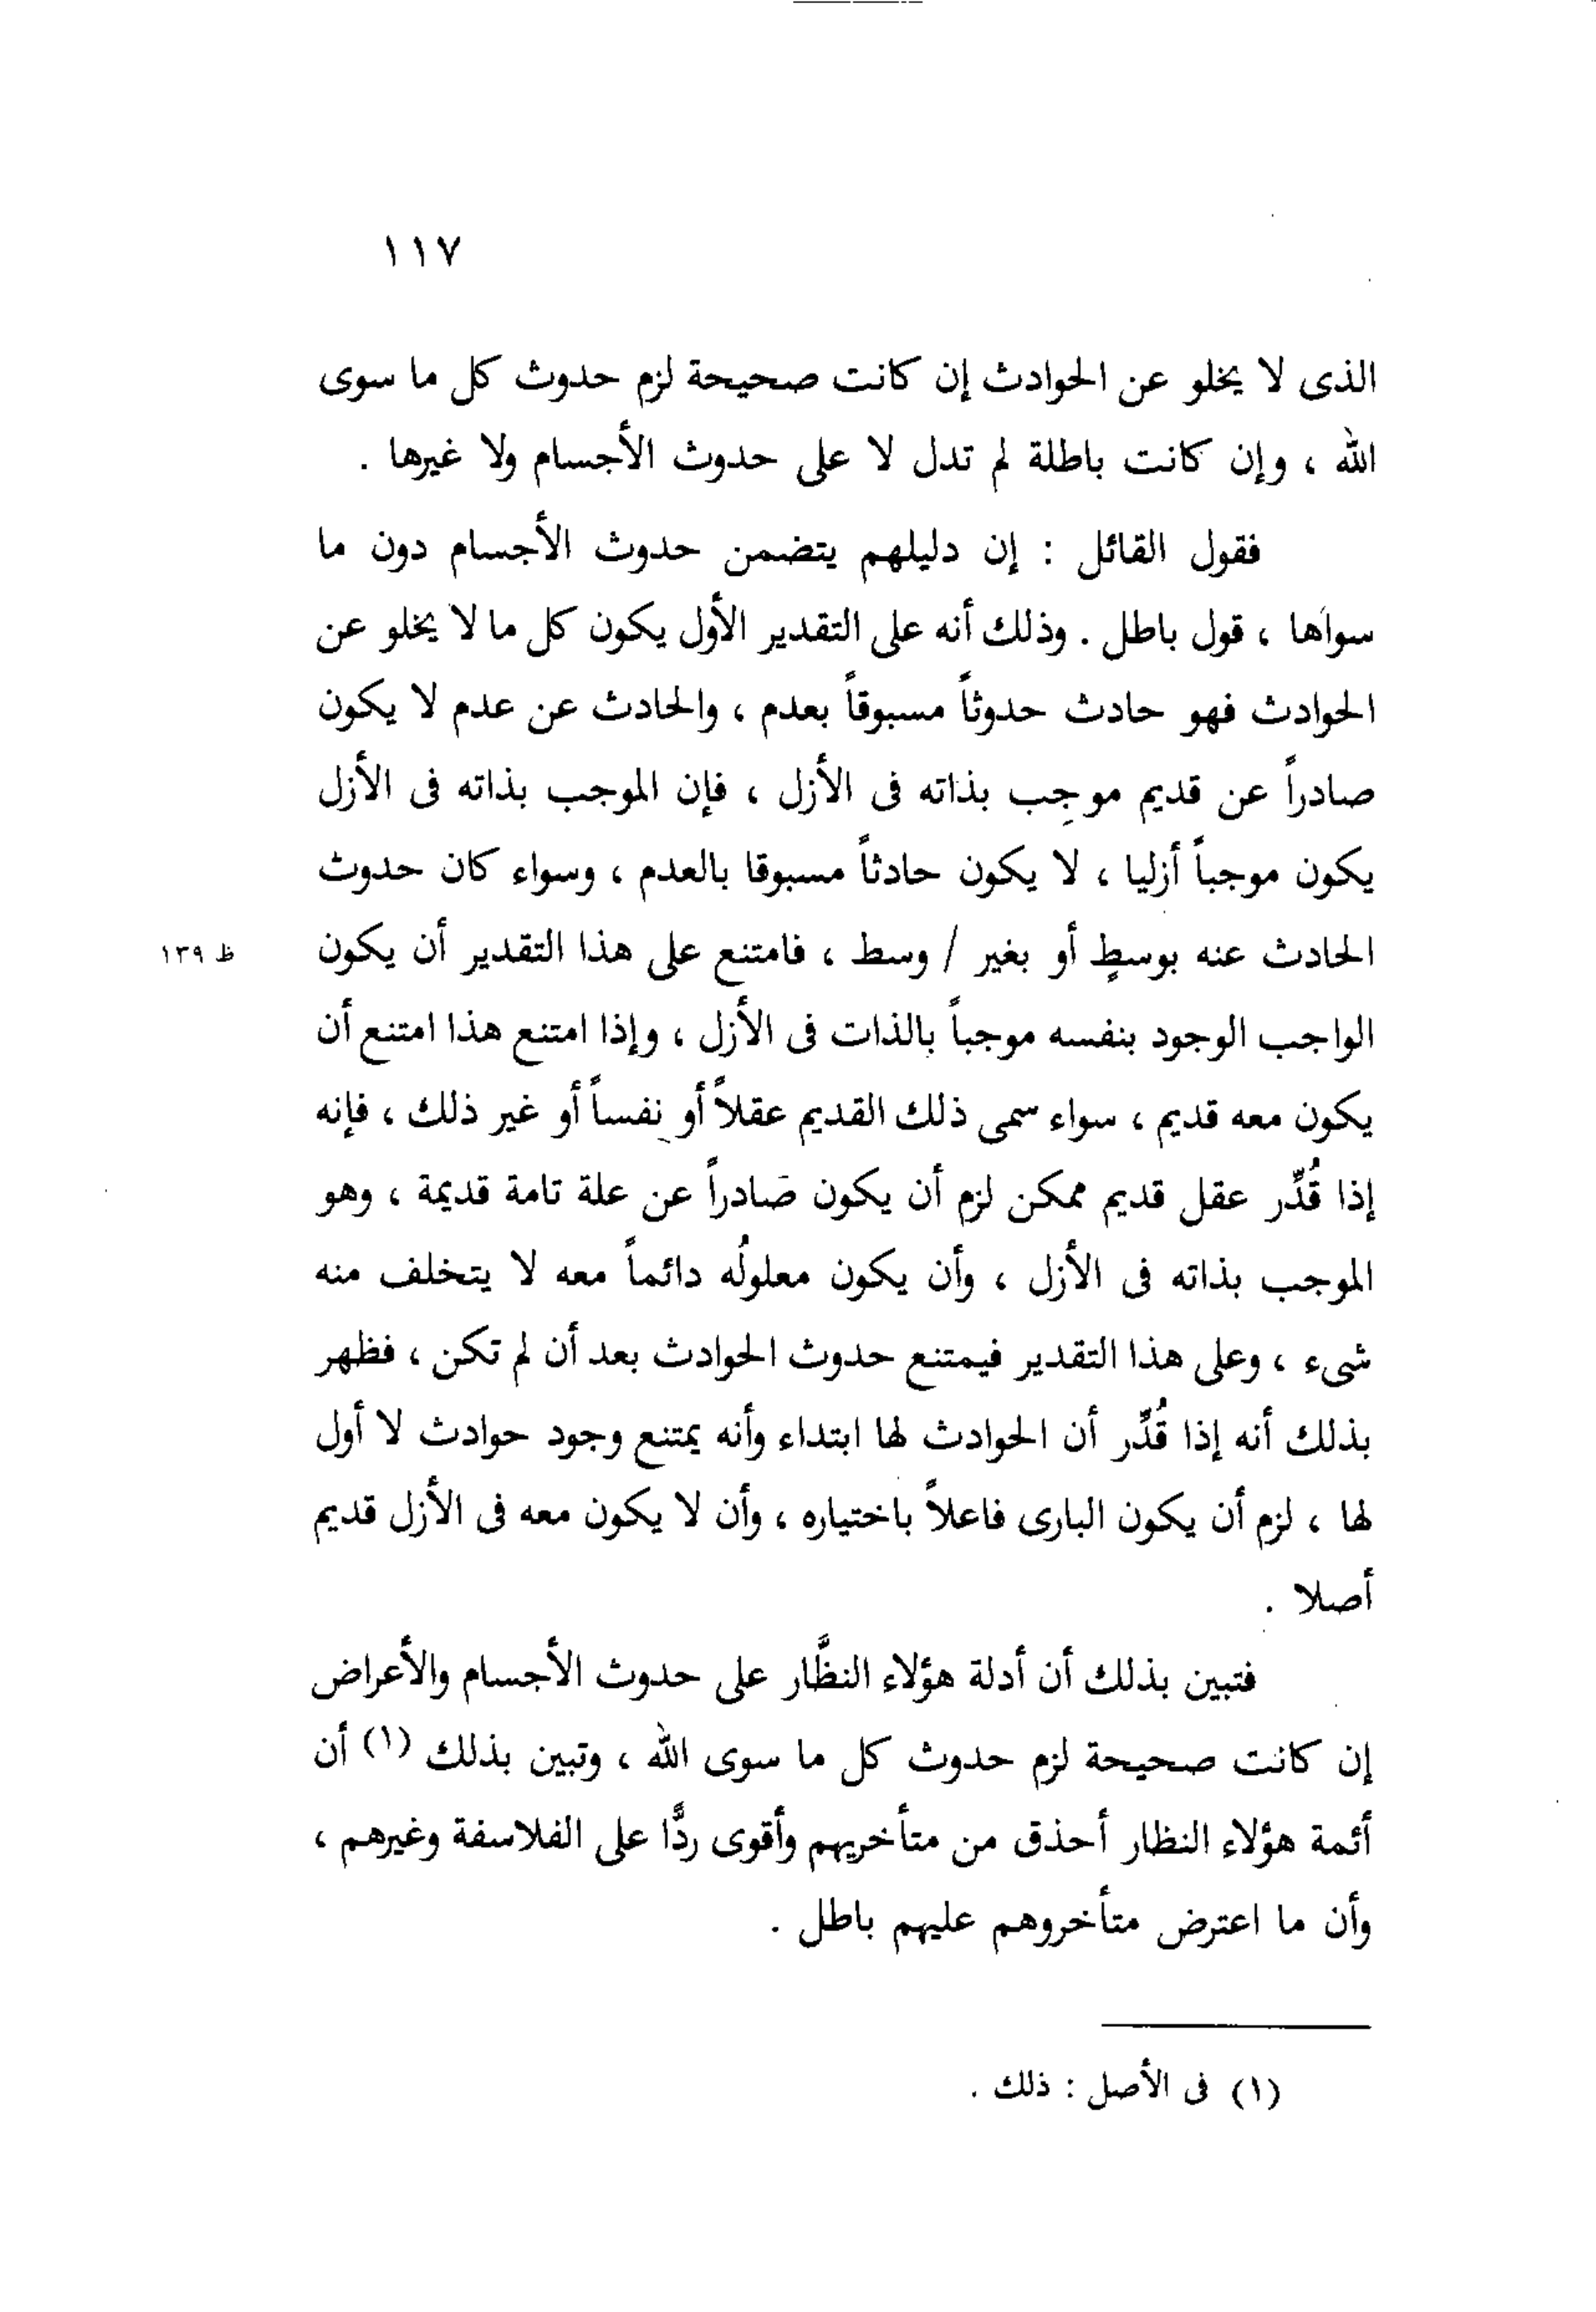 ١١٧
الذى لا يخلو عن الحوادث إن كانت صحيحة لزم حدوث كل ما سوى
الله ، وإن كانت باطلة لم تدل لا على حدوث الأجسام ولا غيرها .
فقول القائل : إن دليلهم يتضمن حدوث الأجسام دون ما
سواها ، قول باطل . وذلك أنه على التقدير الأول يكون كل ما لا يخلو عن
الحوادث فهو حادث حدوثاً مسبوقاً بعدم ، والحادث عن عدم لا يكون
صادراً عن قديم موجِب بذاته فى الأزل ، فإن الموجب بذاته فى الأزل
يكون موجباً أزليا ، لا يكون حادثاً مسبوقا بالعدم ، وسواء كان حدوث
الحادث عنه بوسطٍ أو بغير / وسط ، فامتنع على هذا التقدير أن يكون
ظ ١٣٩
الواجب الوجود بنفسه موجباً بالذات فى الأزل ، وإذا امتنع هذا امتنع أن
يكون معه قديم ، سواء سمى ذلك القديم عقلاً أو نفساً أو غير ذلك ، فإنه
إذا قُدِّر عقل قديم ممكن لزم أن يكون صَادراً عن علة تامة قديمة ، وهو
الموجب بذاته فى الأزل ، وأن يكون معلولُه دائماً معه لا يتخلف منه
شىء ، وعلى هذا التقدير فيمتنع حدوث الحوادث بعد أن لم تكن ، فظهر
بذلك أنه إذا قُدِّر أن الحوادث لها ابتداء وأنه يمتنع وجود حوادث لا أول
لها ، لزم أن يكون البارى فاعلاً باختياره ، وأن لا يكون معه فى الأزل قديم
أصلا .
فتبين بذلك أن أدلة هؤلاء النظَّار على حدوث الأجسام والأعراض
إن كانت صحيحة لزم حدوث كل ما سوى الله ، وتبين بذلك (١) أن
أئمة هؤلاء النظار أحذق من متأخريهم وأقوى ردًّا على الفلاسفة وغيرهم ،
وأن ما اعترض متأخروهم عليهم باطل .
(١) فى الأصل : ذلك .